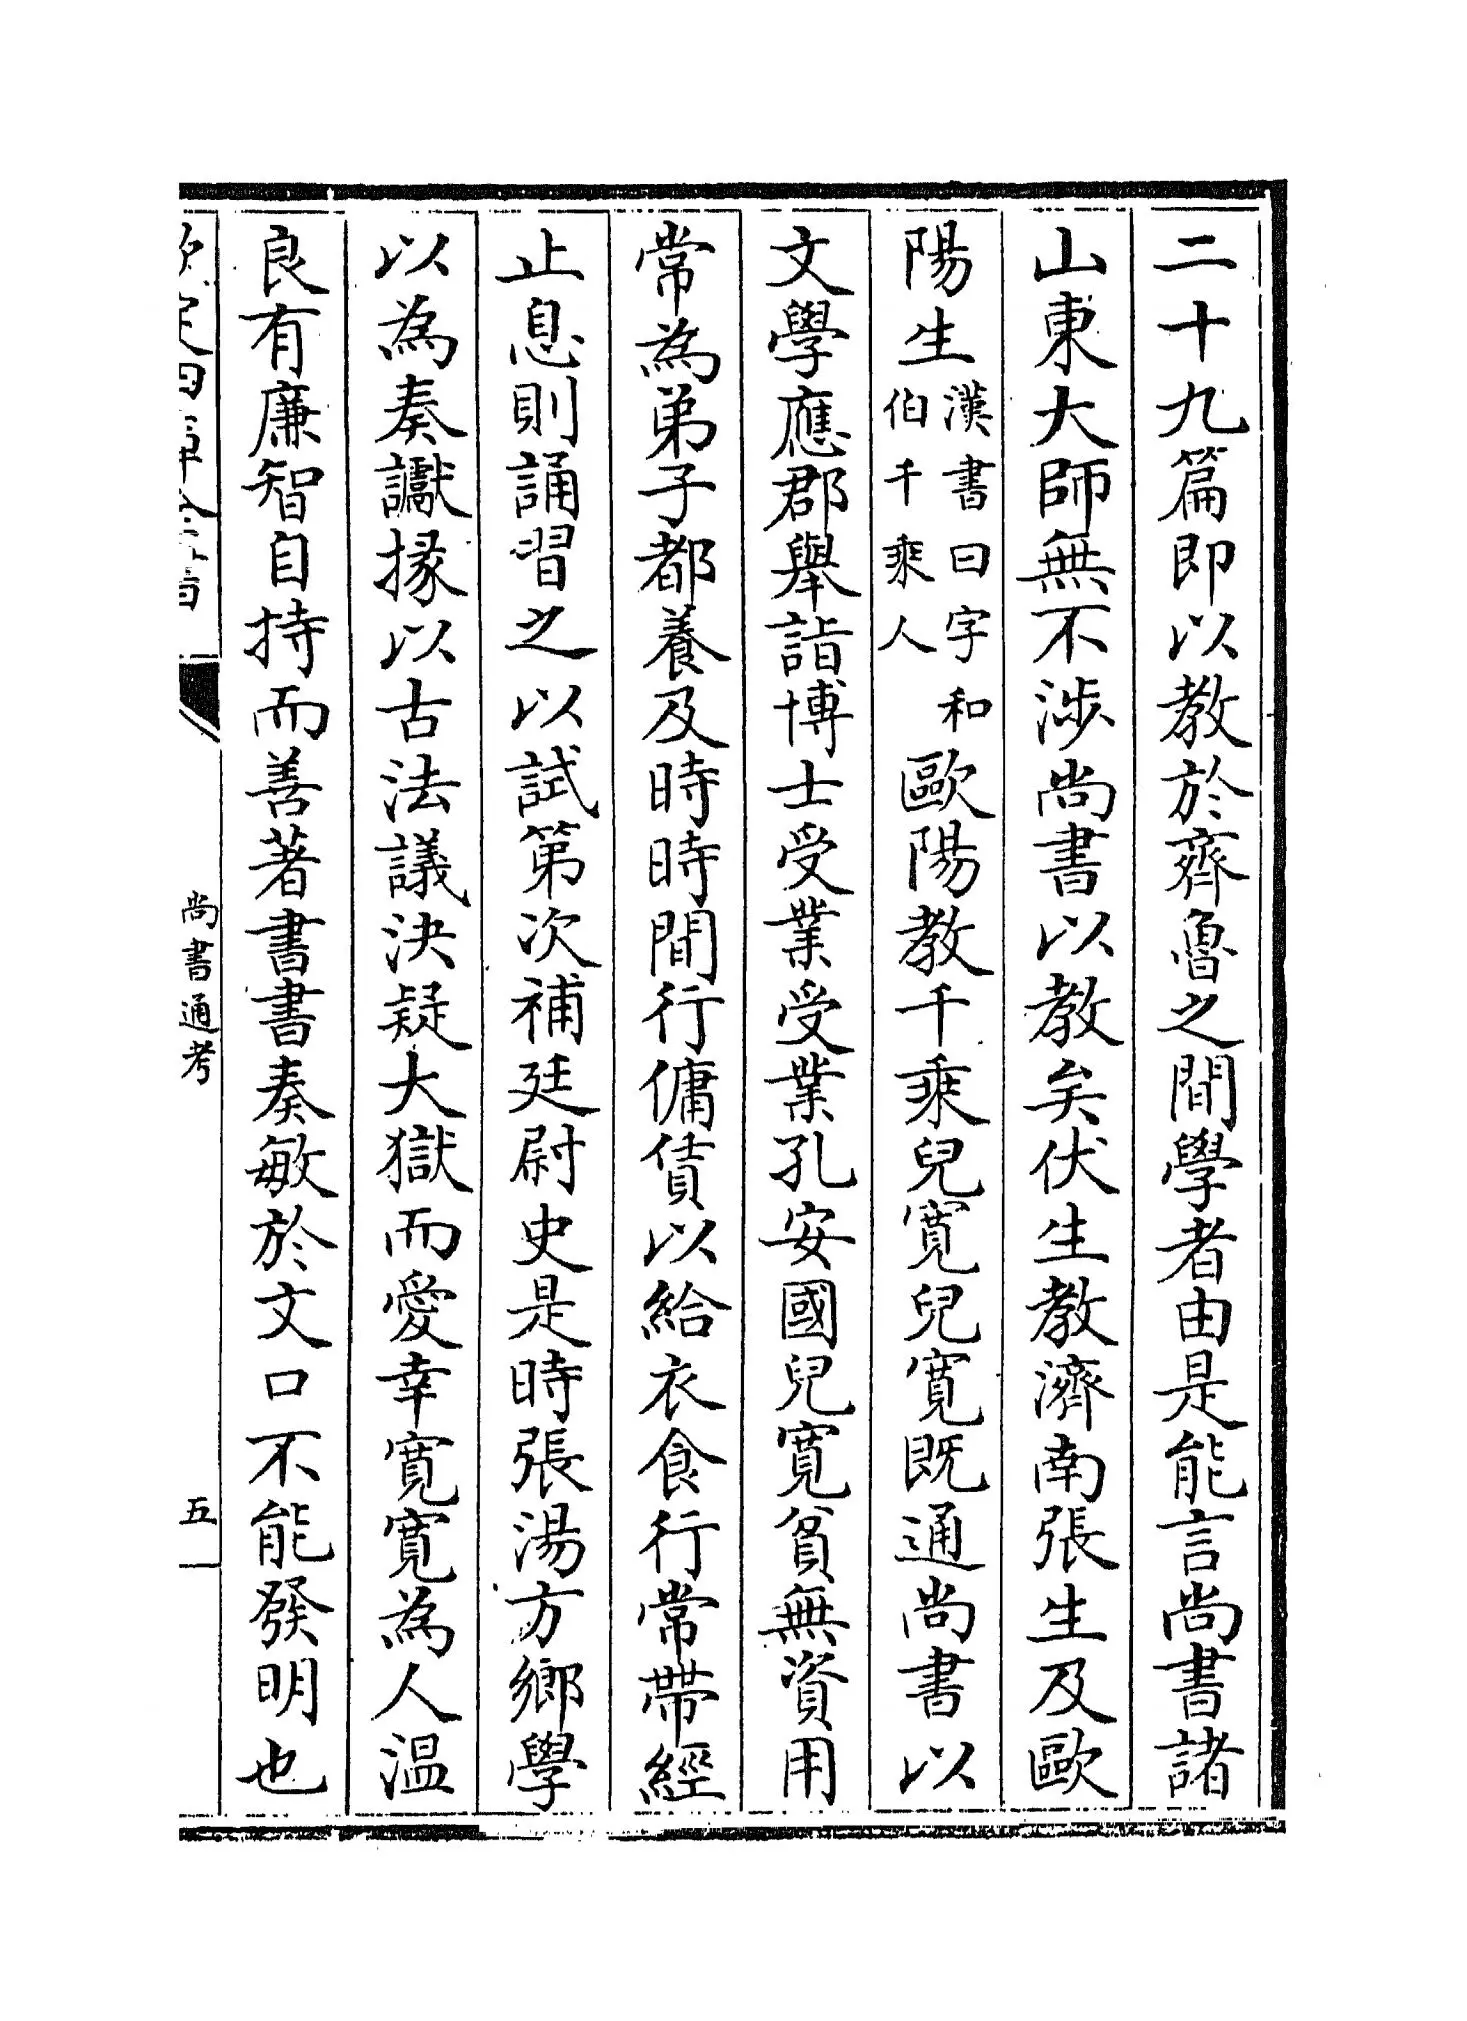 二十九篇即以教於齊魯之間學者由是能言尚書諸
山東大師無不涉尚書以教矣伏生教濟南張生及歐
陽生漢書曰字和伯千乘人歐陽教千乘兒寛兒寛既通尚書以
文學應郡舉詣博士受業受業孔安國兒寛貧無資用
常為弟子都養及時時間行傭賃以給衣食行常帶經
止息則誦習之以試第次補廷尉史是時張湯方鄉學
以為奏讞掾以古法議決疑大獄而愛幸寛寛為人溫
良有廉智自持而善著書書奏敏於文口不能發明也
尚書通考
五